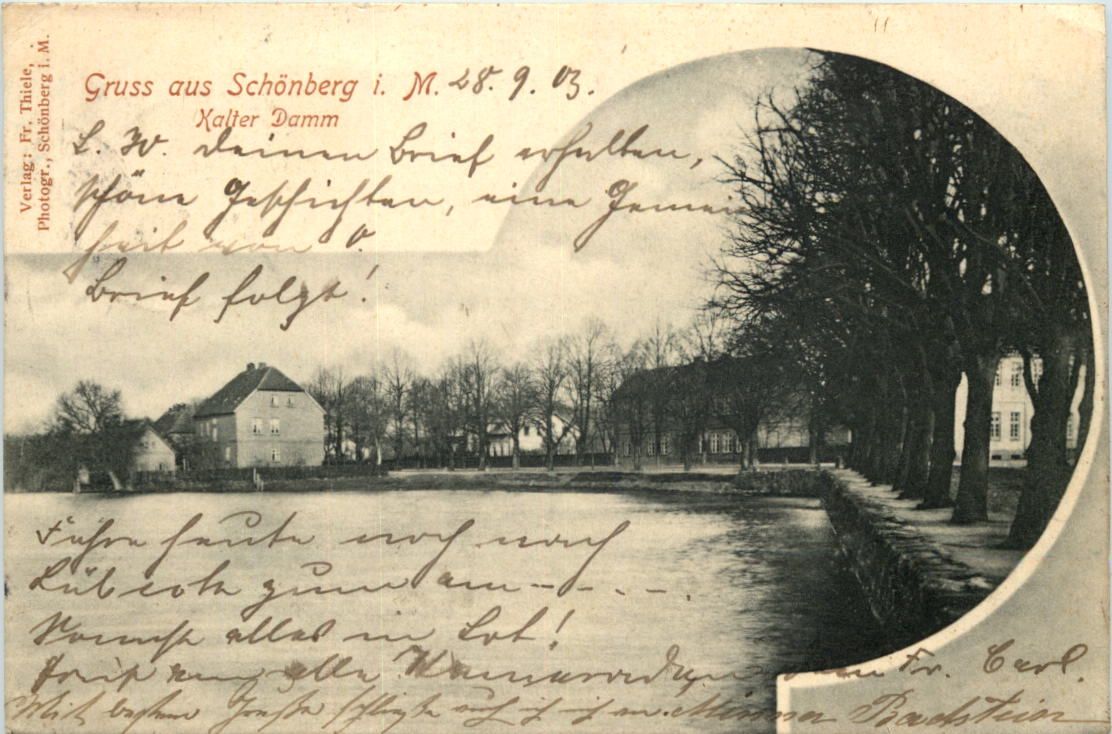 Verlag: Fr. Thiele,
Photogr., Schönberg i. M.
Gruss aus Schönberg i. M. 28. 9. 03.
Kalter Damm
L. W. Deinen Brief erhalten,
schöne Geschichten, eine Gemein
heit von O.
Brief folgt!
Fahre heute noch nach
Lübeck zum am - - . . - .
Sonst alles in Lot!
alle Kameraden Fr. Carl.
Mit besten Grüßen ich Minna Badstein